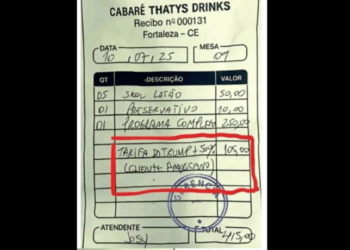 CABARÉ THATYS DRINKS
Recibo nº 000131
Fortaleza - CE
DATA MESA
10/07/25 01
QT DESCRIÇÃO VALOR
05 SKOL LATÃO 50,00
01 PRESERVATIVO 10,00
01 PROGRAMA COMPLETO 250,00
TARIFA DO TRUMP + 50% 105,00
(CLIENTE AMERICANO)
GERÊNCIA
ATENDENTE TOTAL
Josy 415,00